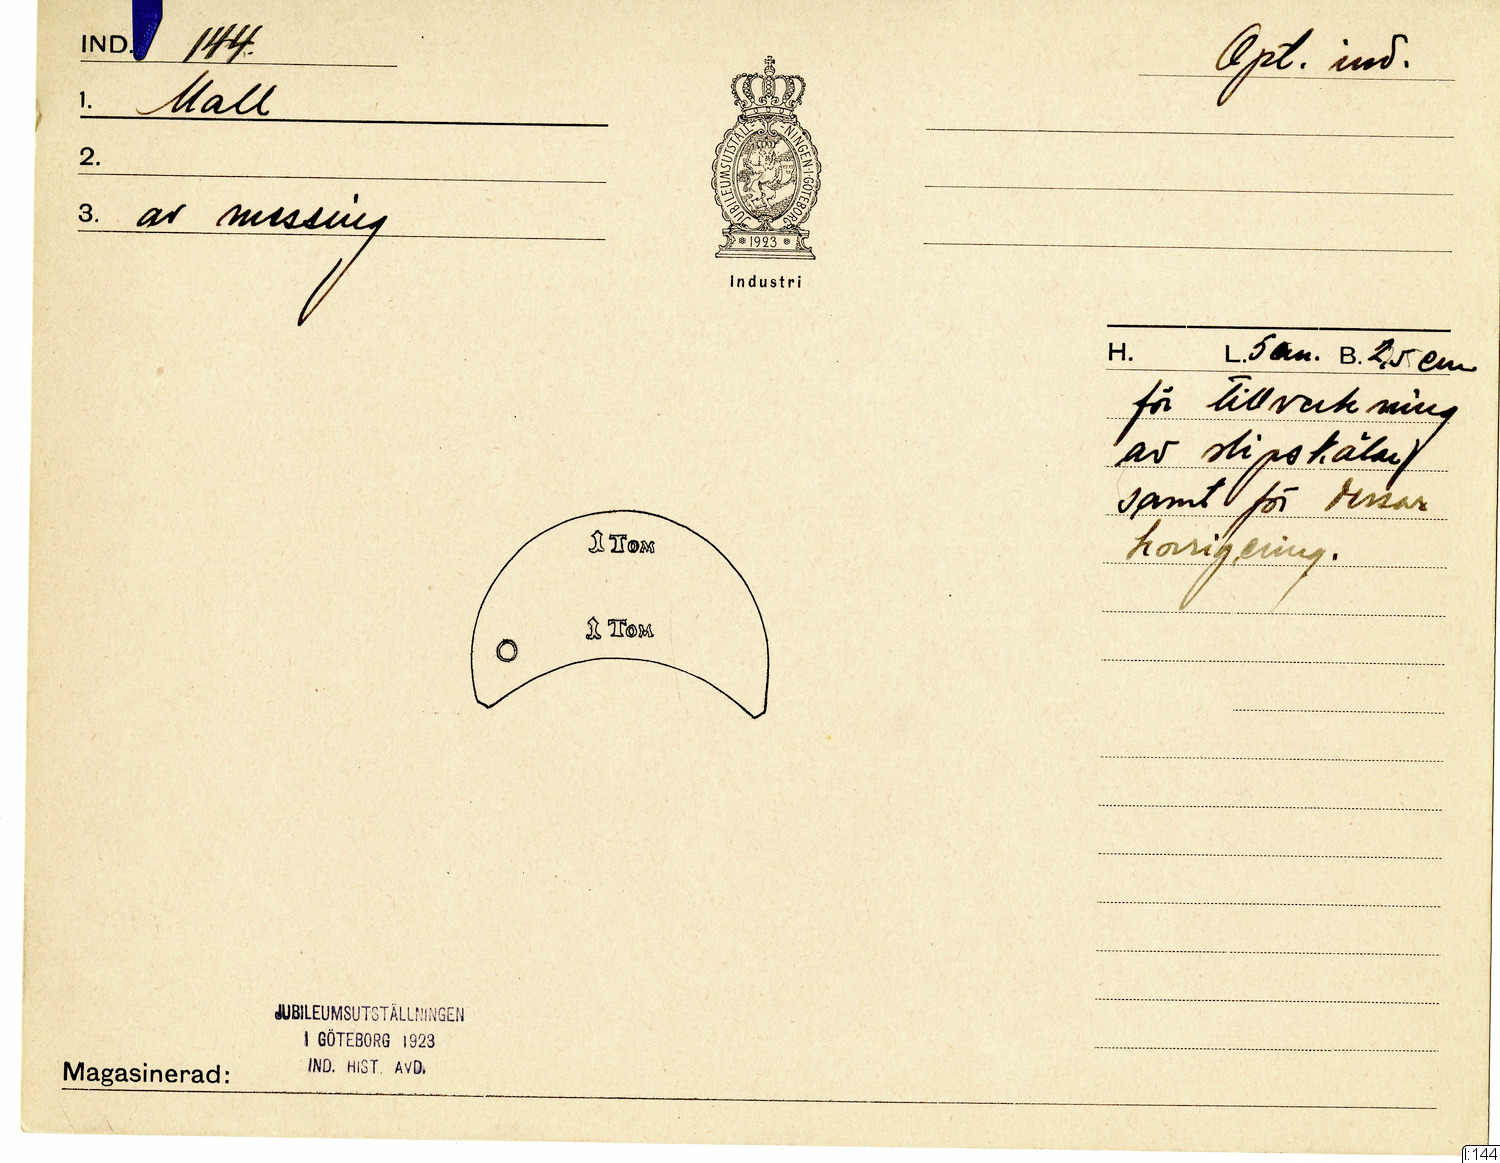 IND. 144.
Opt. ind.
1. Mall
2.
3. av messing
JUBILEUMSUTSTÄLLNINGEN I GÖTEBORG
1923
Industri
H. L. 5 cm. B. 2,5 cm
för tillverkning
av slipskålar
samt för dessas
korrigering.
1 TOM
1 TOM
JUBILEUMSUTSTÄLLNINGEN
I GÖTEBORG 1923
IND. HIST. AVD.
Magasinerad:
I:144